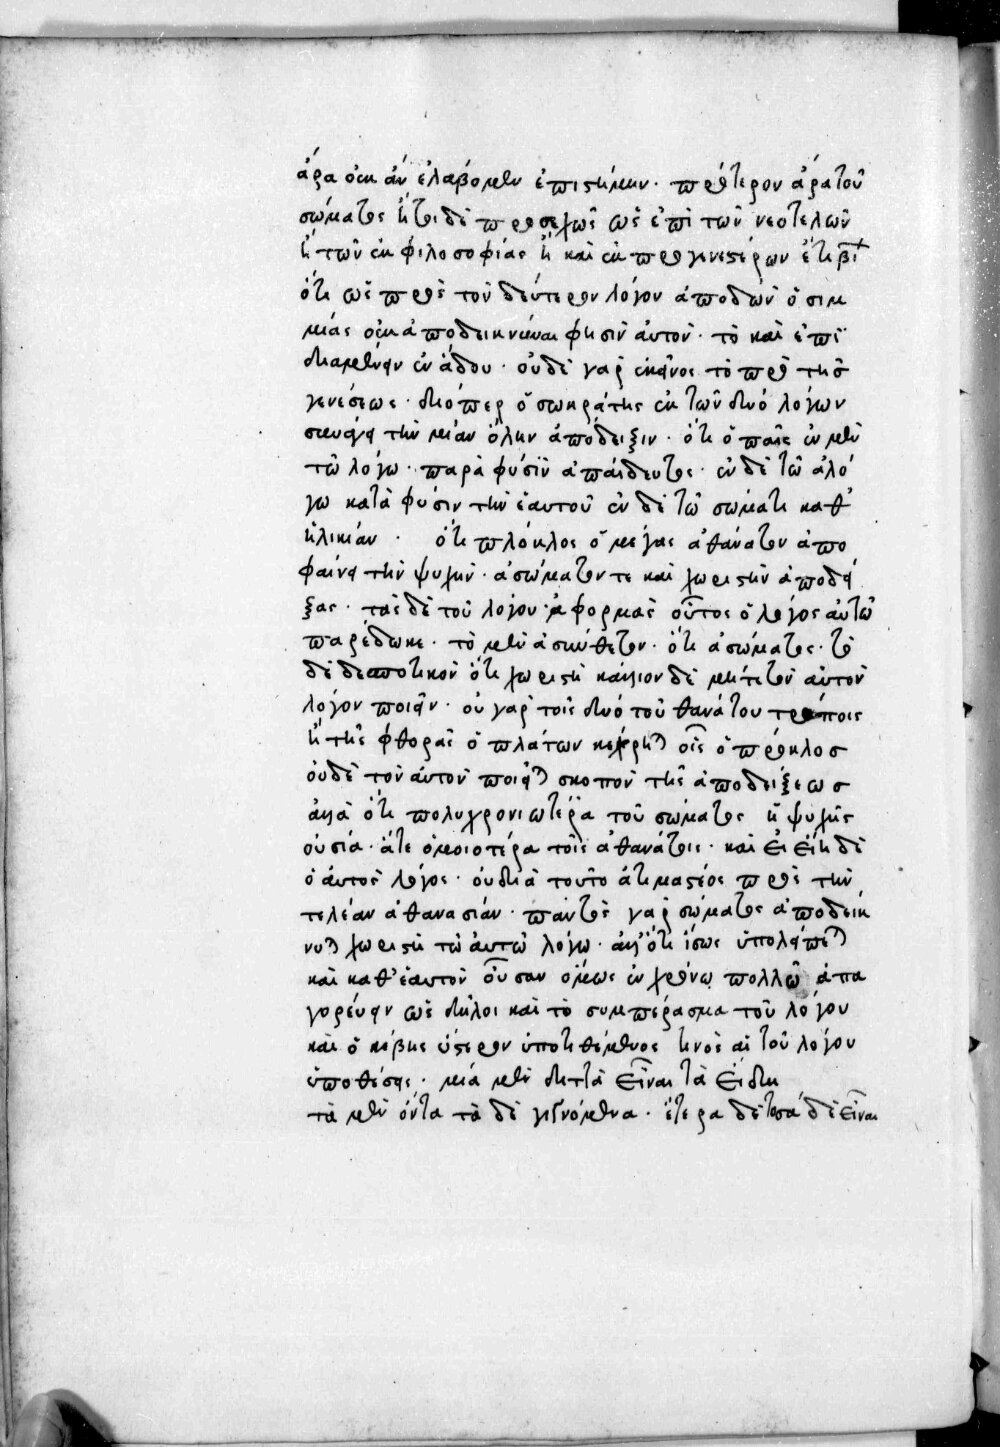 ἄρα οὐκ ἂν ἐλάβομεν ἐπιστήμην · πρότερον ἄρα τοῦ
σώματος ἤτοι δὲ προσεχῶς ὡς ἐπὶ τῶν νεοτελῶν
ἢ τῶν ἐκ φιλοσοφίας ἢ καὶ ἐκ προγενεστέρων ἔτι
ὅτι ὡς πρὸς τὸν δεύτερον λόγον ἀποδὼν ὁ σιμ
μίας οὐκ ἀποδεικνύναι φησὶν αὐτὸν · τὸ καὶ ἐπι
διαμένειν ἐν ἅδου · οὐδὲ γὰρ ἐκεῖνος τὸ πρὸ τῆς
γενέσεως · διόπερ ὁ σωκράτης ἐκ τῶν δυό λόγων
συνάγει τὴν μίαν ὅλην ἀπόδειξιν · ὅτι ὁ παῖς ἐν μὲν
τῶ λόγω · παρὰ φύσιν ἀπαίδευτος · ἐν δὲ τῶ ἀλό
γω κατὰ φύσιν τὴν ἑαυτοῦ ἐν δὲ τῶ σώματι καθ'
ἡλικίαν · ὅτι πλόκλος ὁ μέγας ἀθάνατον ἀπο
φαίνει τὴν ψυχὴν · ἀσώματόν τε καὶ χωριστὴν ἀποδεί
ξας · τὰς δὲ τοῦ λόγου ἀφορμὰς οὗτος ὁ λόγος αὐτῶ
παρέδωκε · τὸ μὲν ἀσύνθετον · ὅτι ἀσώματος · τὸ
δὲ δεσποτικὸν ὅτι χωριστὴ κάλλιον δὲ μήτε τὸν αὐτὸν
λόγον ποιεῖν · οὐ γὰρ τοῖς δυό τοῦ θανάτου τρόποις
ἢ τῆς φθορᾶς ὁ πλάτων κέχρηται οἷς ὁ πρόκλος
οὐδὲ τὸν αὐτὸν ποιεῖται σκοπὸν τῆς ἀποδείξεως
ἀλλὰ ὅτι πολυχρονιωτέρα τοῦ σώματος ἡ ψυχῆς
οὐσία · ἅτε ὁμοιοτέρα τοῖς ἀθανάτοις · καὶ εἰ εἴη δὲ
ὁ αὐτὸς λόγος · οὐ διὰ τοῦτο ἀτιμαστέος πρὸς τὴν
τελέαν ἀθανασίαν · παντὸς γὰρ σώματος ἀποδείκ
νυται χωριστὴ τῶ αὐτῶ λόγω · ἀλλ' ὅτι ἴσως ὑπολείπεται
καὶ καθ' ἑαυτὸν οὖσαν ὅμως ἐν χρόνω πολλῶ ἀπα
γορεύειν ὡς δηλοῖ καὶ τὸ συμπέρασμα τοῦ λόγου
καὶ ὁ κέβης ὕστερον ὑποτιθέμενος τινὸς αἱ τοῦ λόγου
ὑποθέσεις · μία μὲν διττὰ εἶναι τὰ εἴδη
τὰ μὲν ὄντα τὰ δὲ γιγνόμενα · ἕτερα δὲ τοσάδε εἶναι